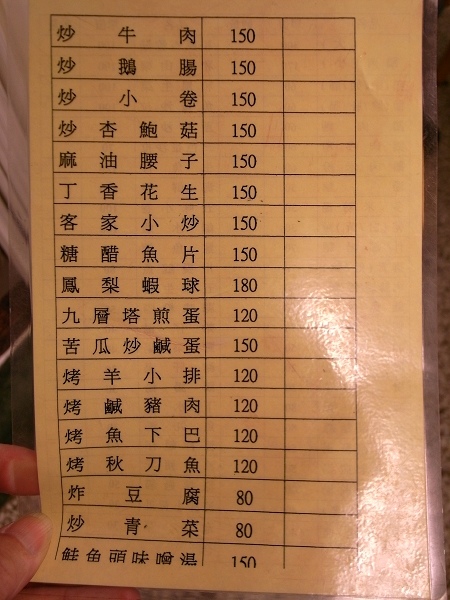 炒牛肉 150
炒鵝腸 150
炒小卷 150
炒杏鮑菇 150
麻油腰子 150
丁香花生 150
客家小炒 150
糖醋魚片 150
鳳梨蝦球 180
九層塔煎蛋 120
苦瓜炒鹹蛋 150
烤羊小排 120
烤鹹豬肉 120
烤魚下巴 120
烤秋刀魚 120
炸豆腐 80
炒青菜 80
鮭魚頭味噌湯 150